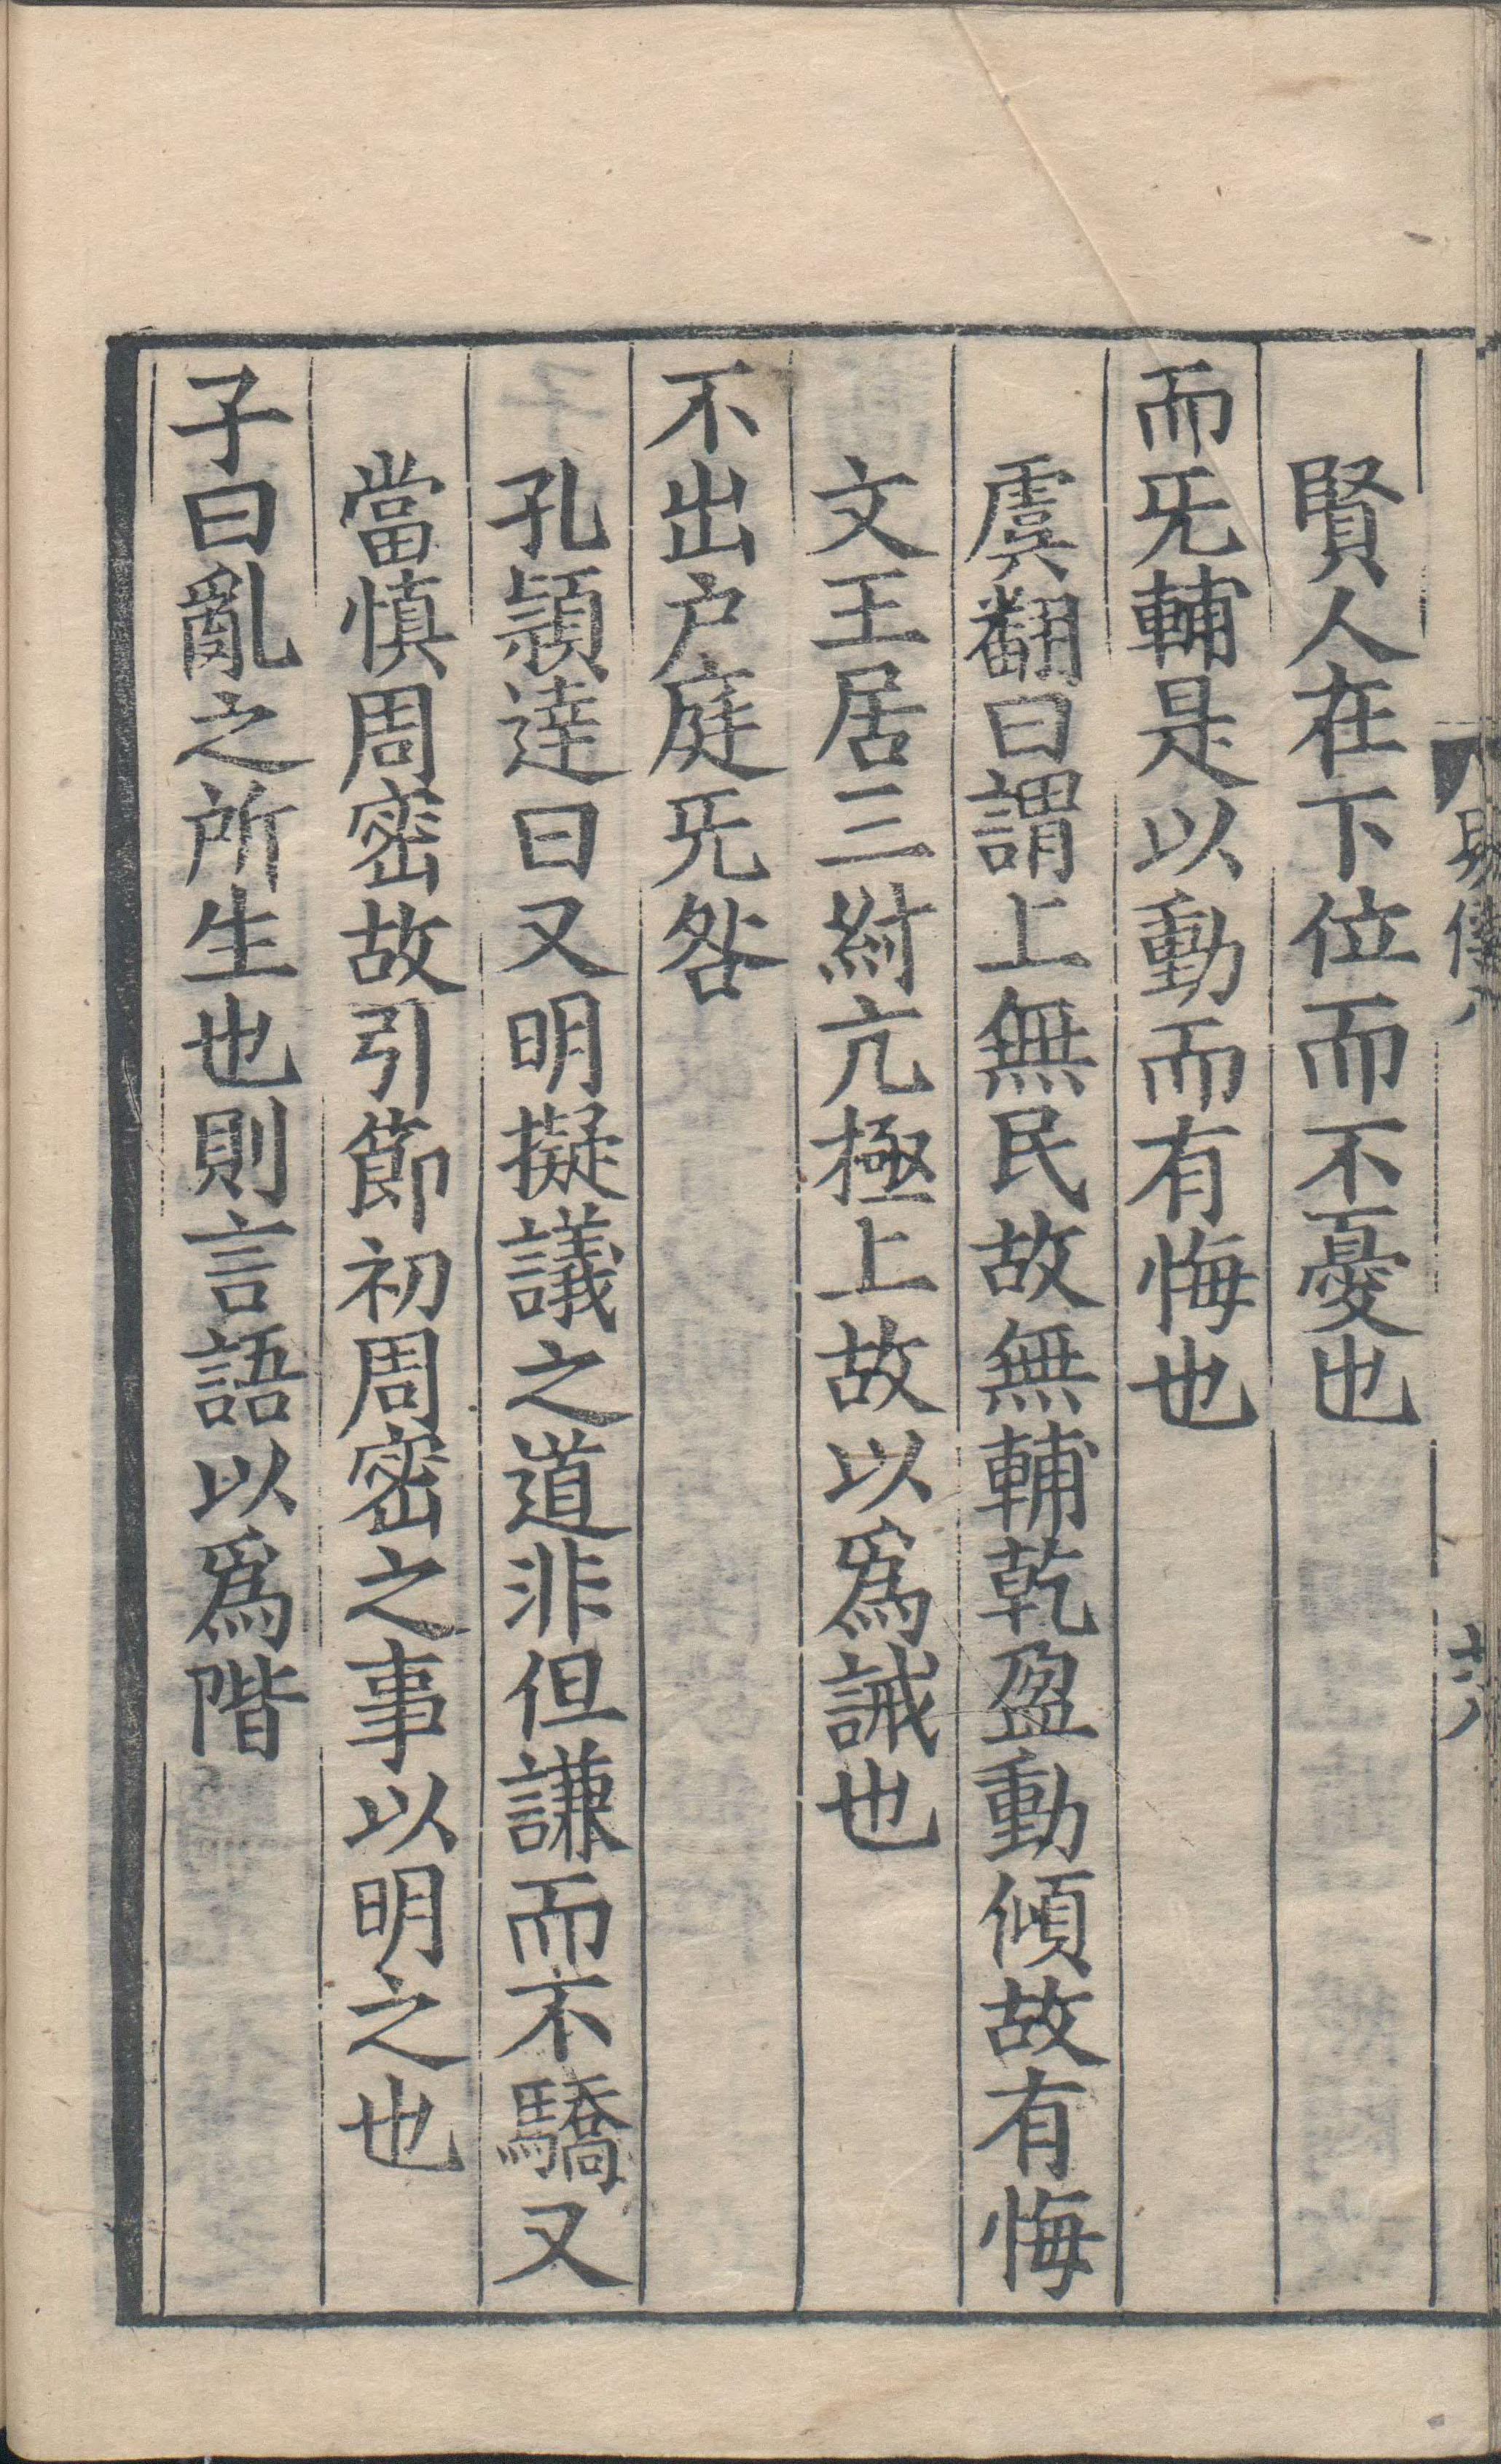 賢人在下位而不憂也
而旡輔是以動而有悔也
虞翻曰謂上無民故無輔乾盈動傾故有悔
文王居三紂亢極上故以爲誡也
不出户庭旡咎
孔頴達曰又明擬議之道非但謙而不驕又
當慎周密故引節初周密之事以明之也
子曰亂之所生也則言語以爲階